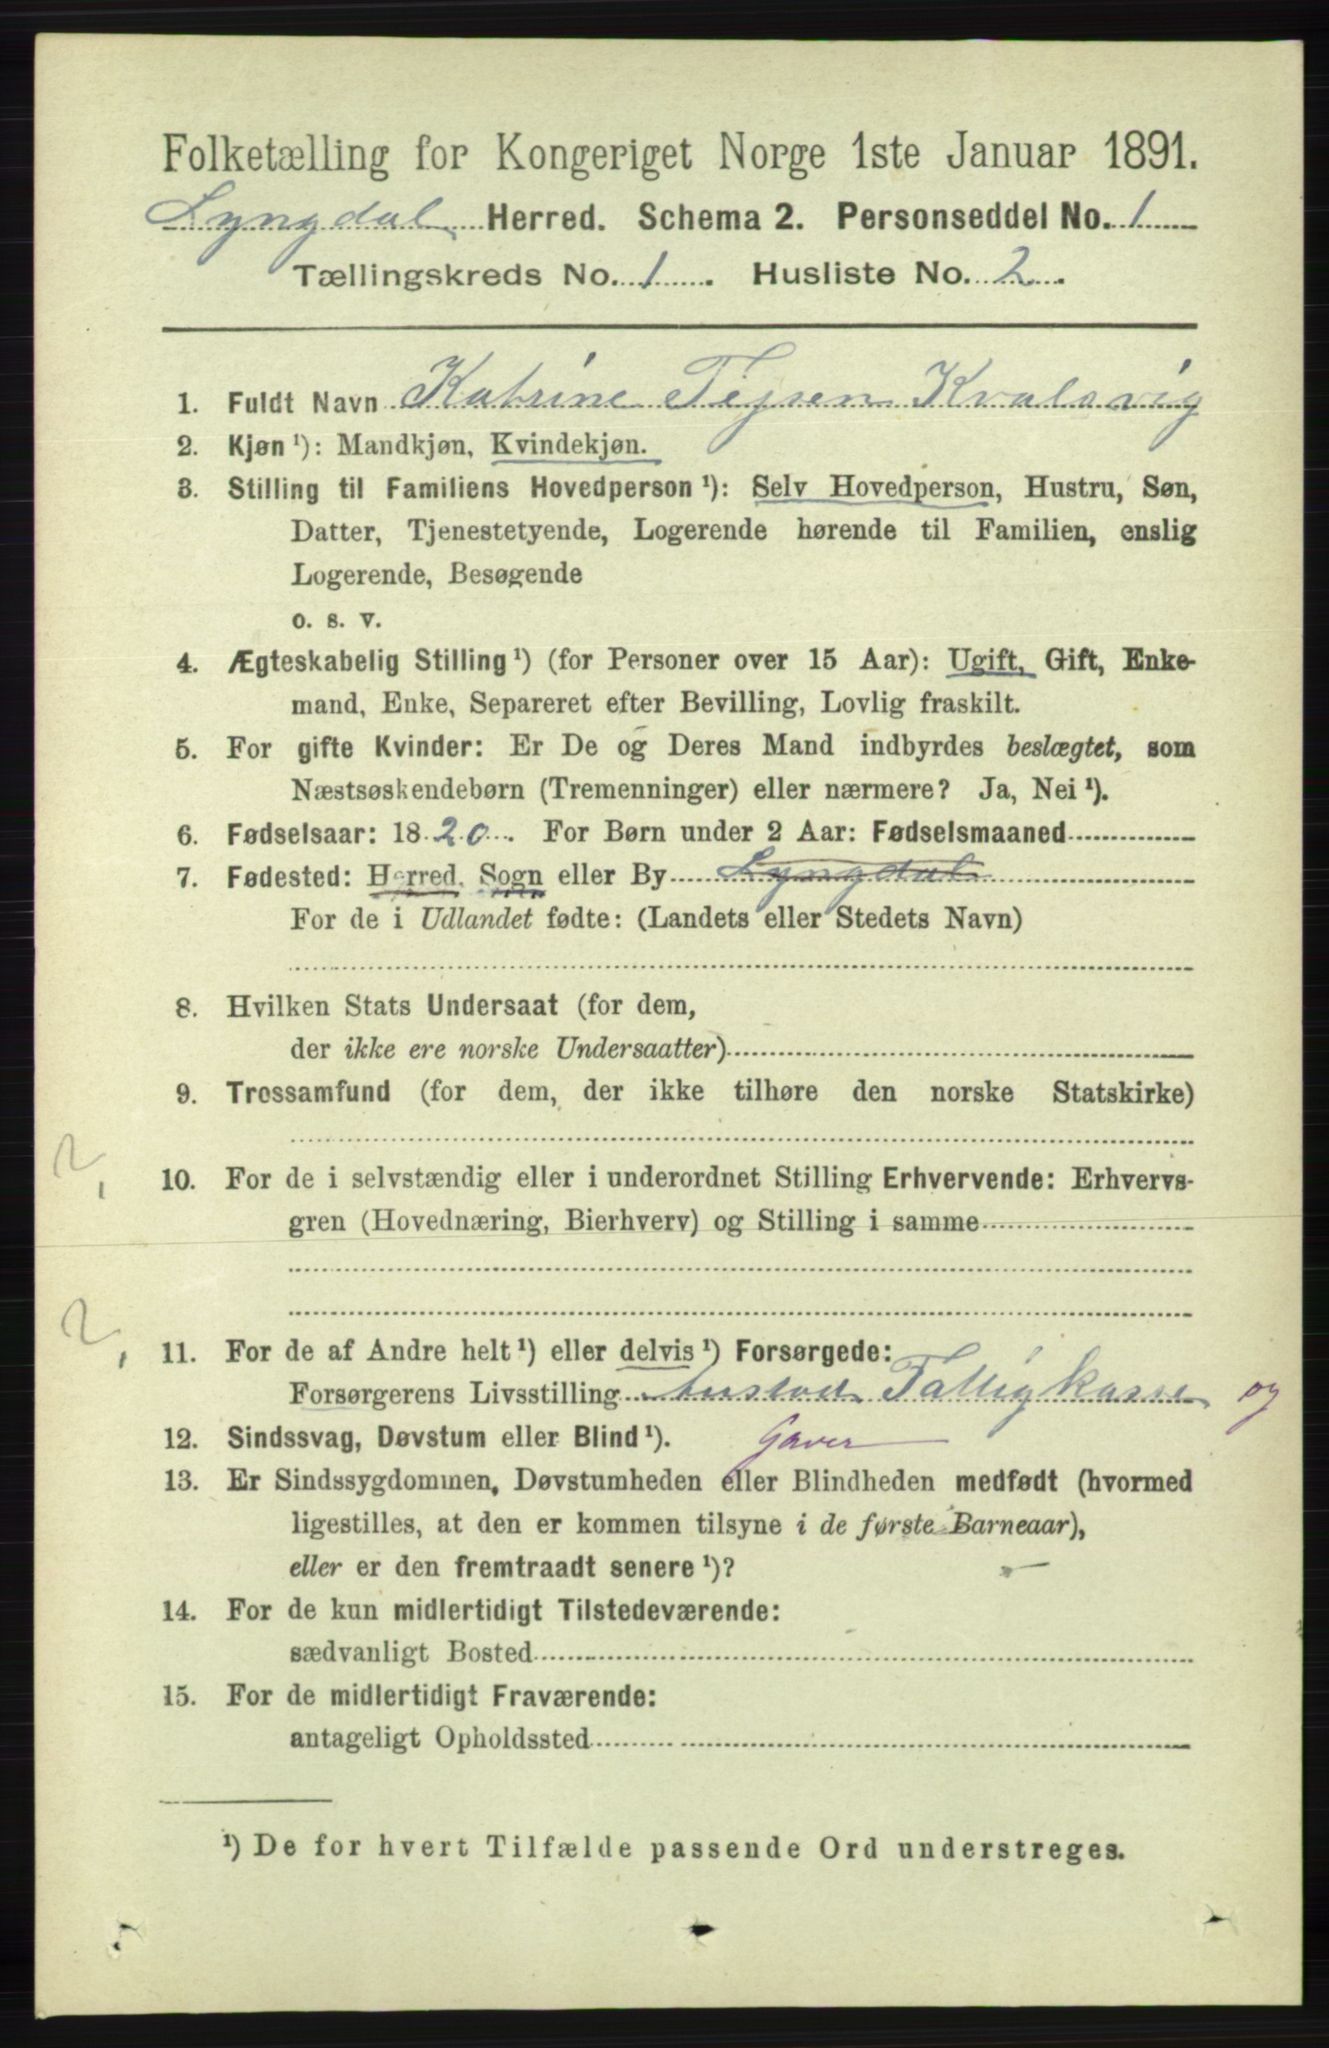 Folketælling for Kongeriget Norge 1ste Januar 1891.
Lyngdal Herred. Schema 2. Personseddel No. 1
Tællingskreds No. 1. Husliste No. 2.
1. Fuldt Navn Katrine Tejsen Kvalsvig
2. Kjøn ¹): Mandkjøn, Kvindekjøn.
3. Stilling til Familiens Hovedperson ¹): Selv Hovedperson, Hustru, Søn,
Datter, Tjenestetyende, Logerende hørende til Familien, enslig
Logerende, Besøgende
o. s. v.
4. Ægteskabelig Stilling ¹) (for Personer over 15 Aar): Ugift, Gift, Enke-
mand, Enke, Separeret efter Bevilling, Lovlig fraskilt.
5. For gifte Kvinder: Er De og Deres Mand indbyrdes beslægtet, som
Næstsøskendebørn (Tremenninger) eller nærmere? Ja, Nei ¹).
6. Fødselsaar: 1820. For Børn under 2 Aar: Fødselsmaaned
7. Fødested: Herred, Sogn eller By Lyngdal
For de i Udlandet fødte: (Landets eller Stedets Navn)
8. Hvilken Stats Undersaat (for dem,
der ikke ere norske Undersaatter)
9. Trossamfund (for dem, der ikke tilhøre den norske Statskirke)
2,
10. For de i selvstændig eller i underordnet Stilling Erhvervende: Erhvervs-
gren (Hovednæring, Bierhverv) og Stilling i samme
2,
11. For de af Andre helt ¹) eller delvis ¹) Forsørgede:
Forsørgerens Livsstilling Fattigkasse og
12. Sindssvag, Døvstum eller Blind ¹). Gaver
13. Er Sindssygdommen, Døvstumheden eller Blindheden medfødt (hvormed
ligestilles, at den er kommen tilsyne i de første Barneaar),
eller er den fremtraadt senere ¹)? —
14. For de kun midlertidigt Tilstedeværende:
sædvanligt Bosted
15. For de midlertidigt Fraværende:
antageligt Opholdssted
¹) De for hvert Tilfælde passende Ord understreges.